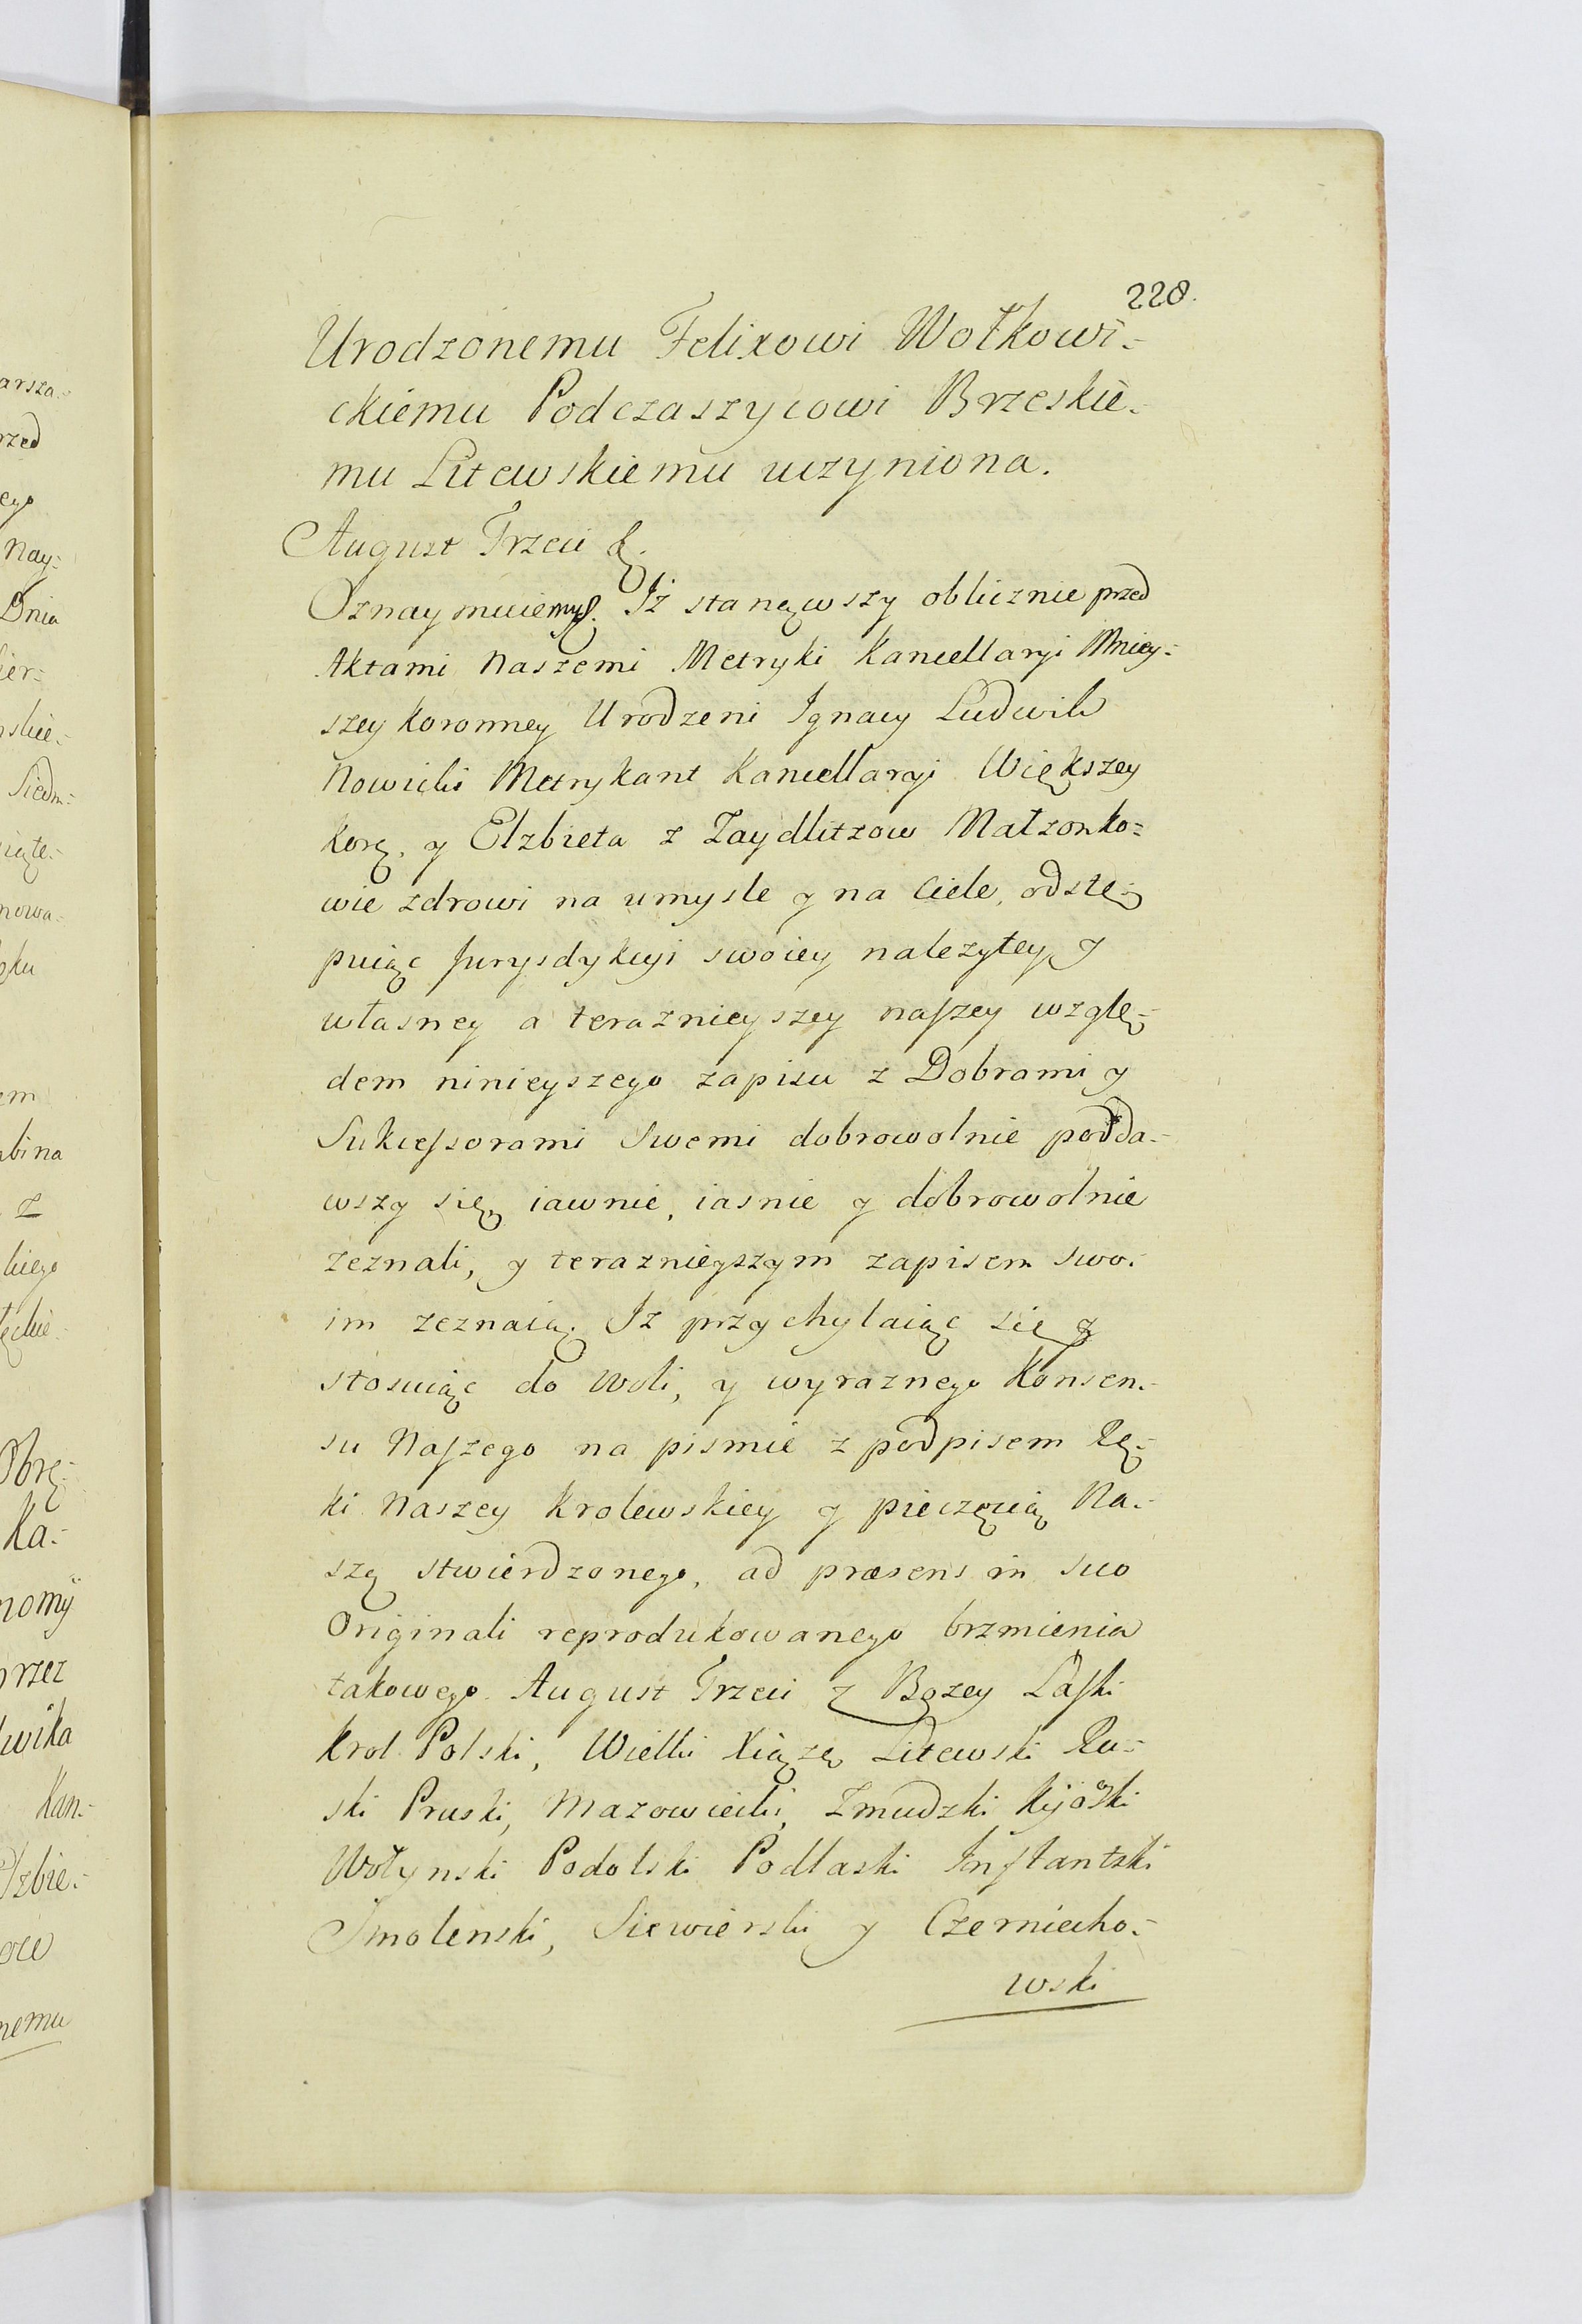 228.
Urodzonemu Felixowi Wołkowi-
ckiemu Podczaszycowi Brzeskie-
mu Litewskiemu uczyniona.
August Trzeci &.
Oznaymuiemy &. Iż stanąwszy oblicznie przed
Aktami Naszemi Metryki Kancellaryi Mniey-
szey Koronney Urodzeni Ignacy Ludwik
Nowicki Metrykant Kancellaryi Większey
Korą. y Elzbieta z Zaydlitzow Małzonko-
wie zdrowi na umysle y na Ciele, odstę-
puiąc Jurysdykcyi swoiey nalezytey y
własney a teraznieyszey naszey wzglę-
dem ninieyszego zapisu z Dobrami y
Sukcessorami Swemi dobrowolnie podda-
wszy się, iawnie, iasnie y dobrowolnie
zeznali, y teraznieyszym zapisem swo-
im zeznaią. Iz przychylaiąc się y
stosuiąc do Woli, y wyraznego Konsen-
su Naszego na pismie z podpisem Rę-
ki Naszey Krolewskiey y pieczęcią Na-
szą stwierdzonego, ad præsens in suo
Originali reprodukowanego brzmienia
takowego. August Trzeci z Bozey Łaski
Krol Polski, Wielki Xiąze Litewski Ru-
ski Pruski, Mazowiecki, Zmudzki Kijoski
Wołynski Podolski Podlaski Inflantski
Smolenski, Siewierski y Czerniecho-
wski
arsza-
rzed
ego
Nay-
Dnia
ier-
skie-
Siedm-
nowa-
em
bina
z
kiego
Obrę-
Ka-
nomÿ
przez
wika
Kan-
lzbie-
nemu